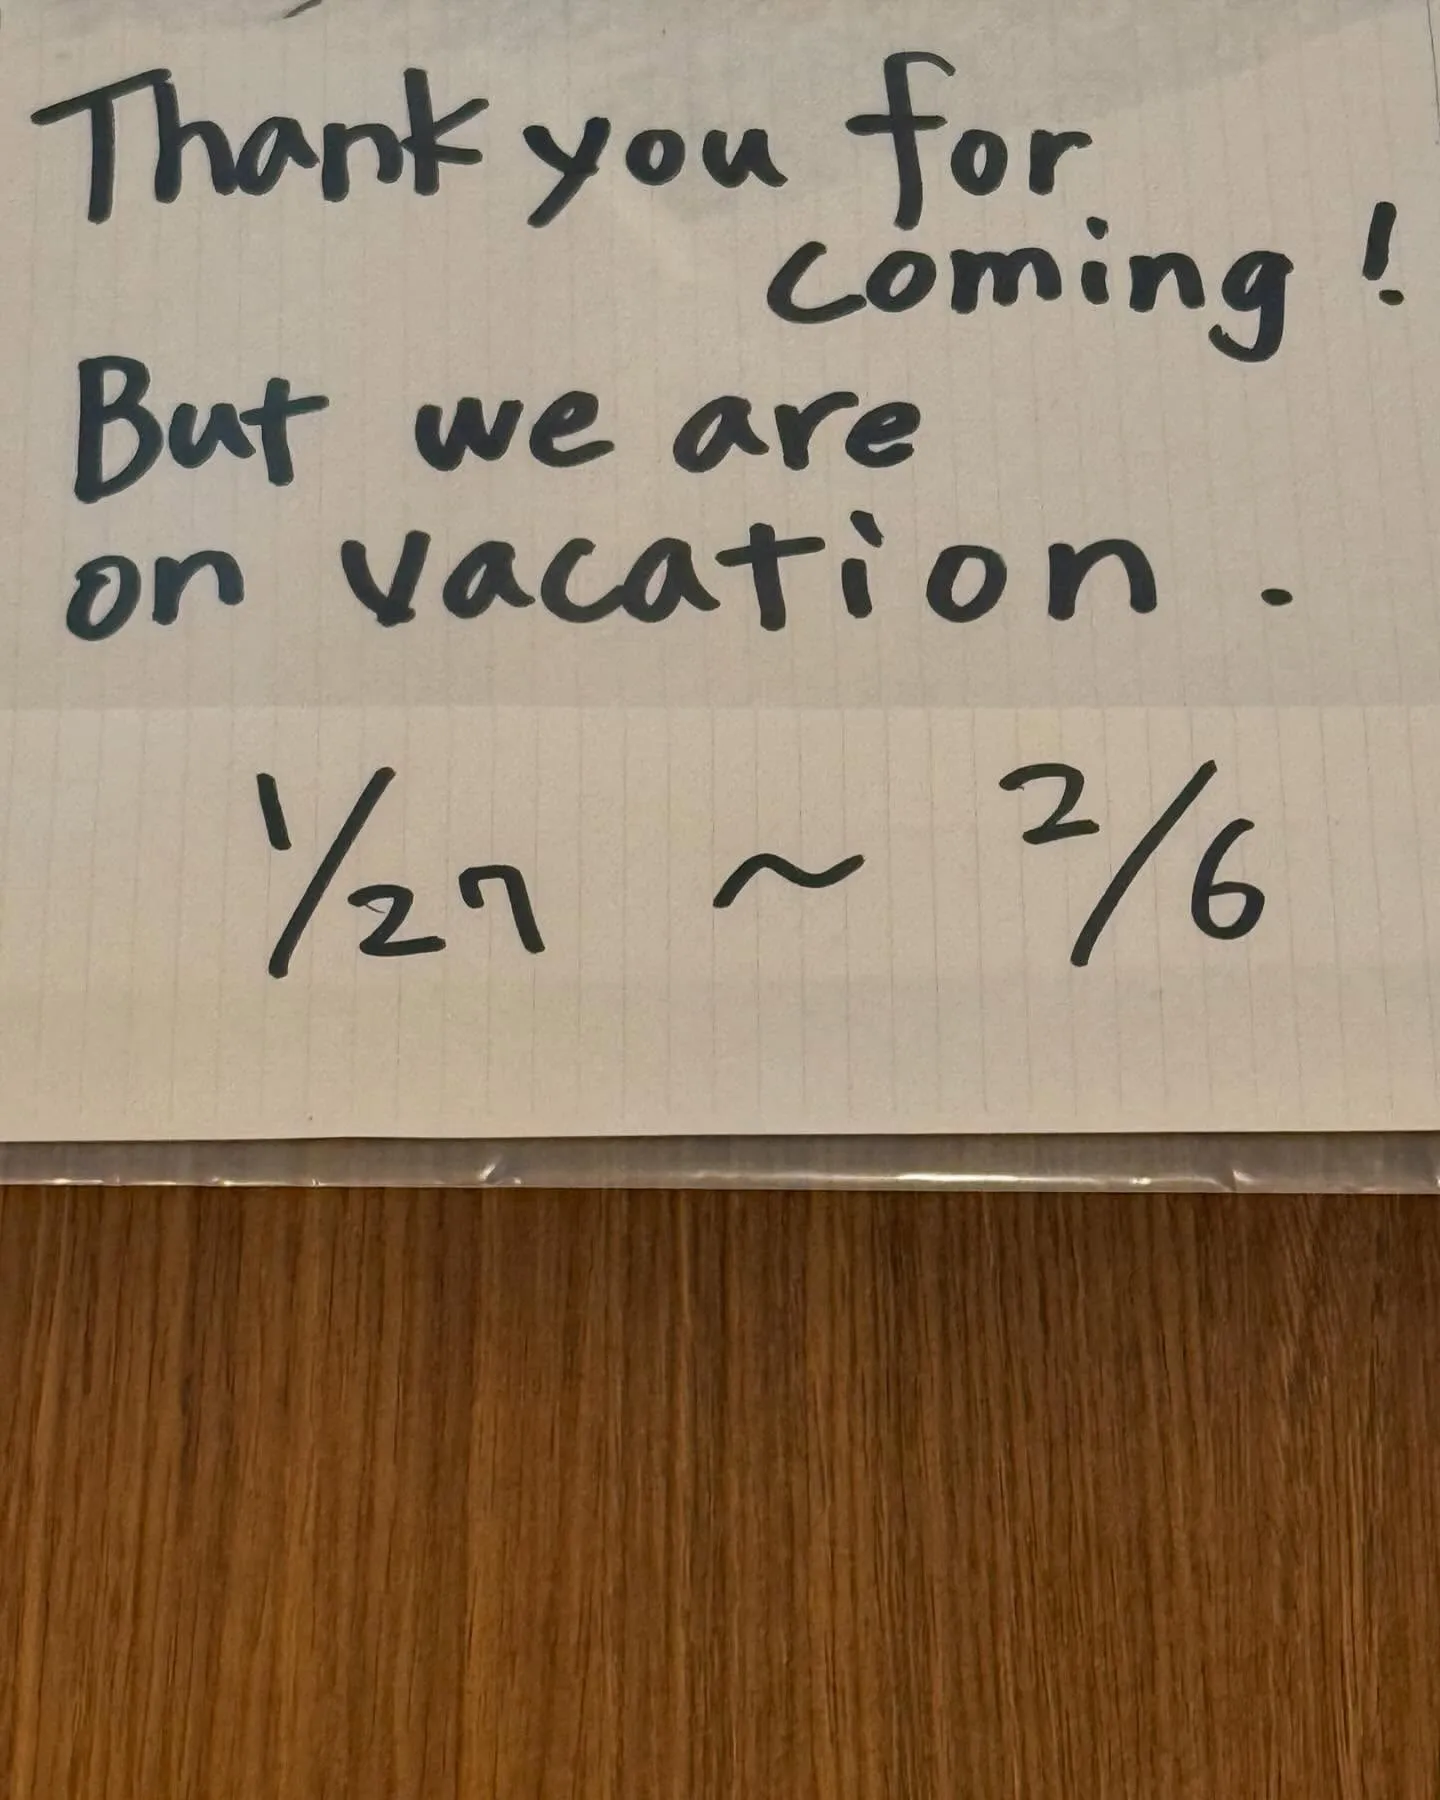 Thank you for
coming!
But we are
on vacation.
1/27 ~ 2/6